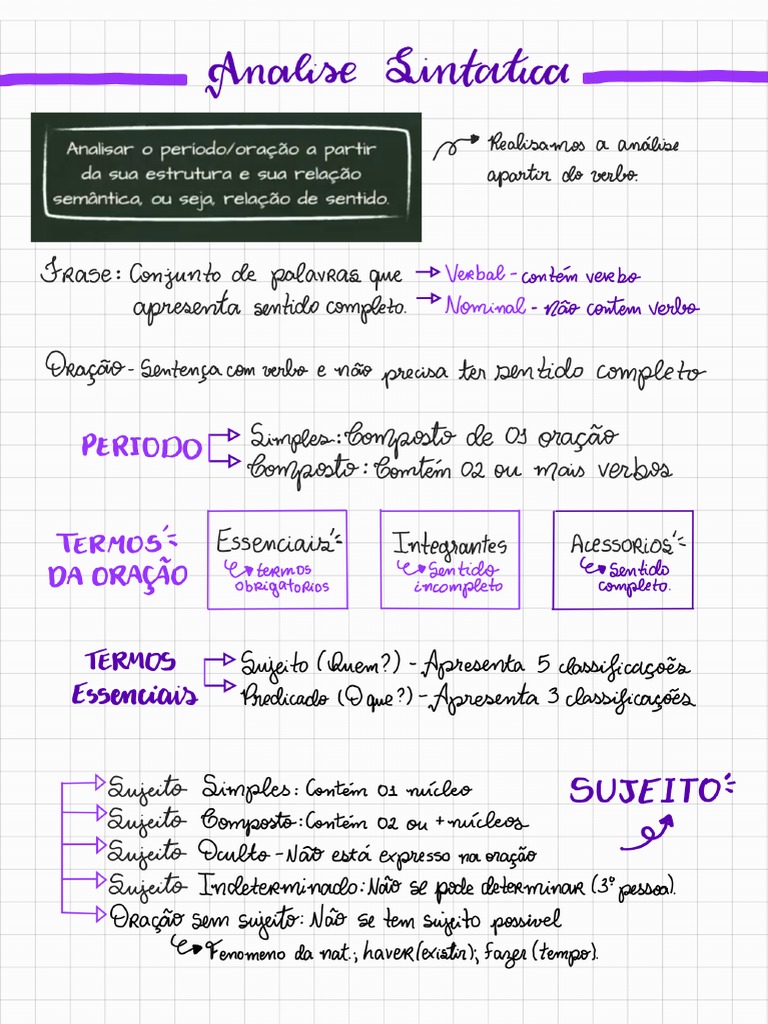 Analise Sintatica
Analisar o período/oração a partir
da sua estrutura e sua relação
semântica, ou seja, relação de sentido.
Realisamos a análise
apartir do verbo.
Frase: Conjunto de palavras que
apresenta sentido completo.
Verbal - contém verbo
Nominal - não contem verbo
Oração - Sentença com verbo e não precisa ter sentido completo
PERIODO
Simples: Composto de 01 oração
Composto: Comtém 02 ou mais verbos
TERMOS
DA ORAÇÃO
Essenciais
termos
obrigatorios
Integrantes
Sentido
incompleto
Acessorios
Sentido
completo.
TERMOS
Essenciais
Sujeito (Quem?) - Apresenta 5 classificações
Predicado (O que?) - Apresenta 3 classificações
SUJEITO
Sujeito Simples: Contén 01 núcleo
Sujeito Composto: Contén 02 ou + núcleos
Sujeito Oculto - Não está expresso na oração
Sujeito Indeterminado: Não se pode determinar (3º pessoa).
Oração sem sujeito: Não se tem sujeito possivel
Fenomeno da nat.; haver (existir); fazer (tempo).